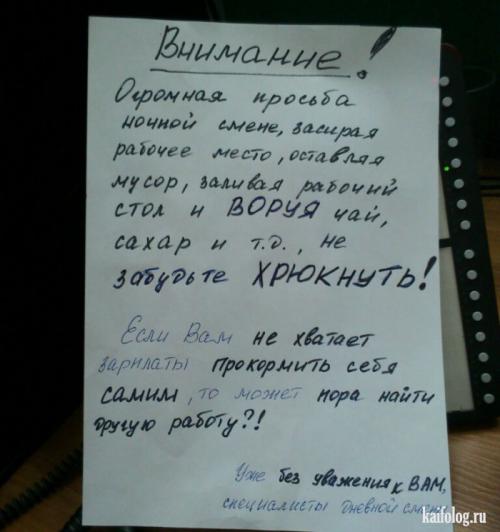 Внимание!
Огромная просьба
ночной смене, засирая
рабочее место, оставляя
мусор, заливая рабочий
стол и ВОРУЯ чай,
сахар и т.д., не
забудьте ХРЮКНУТЬ!
Если Вам не хватает
зарплаты прокормить себя
самим, то может пора найти
другую работу?!
Уже без уважения к ВАМ,
специалисты дневной
kaifolog.ru